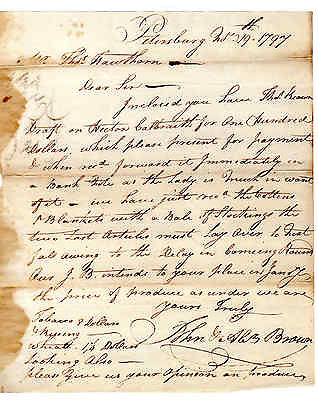 Petersburg 19th 1797
Mr Thos Hawthorn
Dear Sir
Inclosed you have Thos Brown
Draft on Hector Calbraith for One Hundred
Dollars, which please present for payment
& when recd forward it Immediately in
a Bank Note as the Lady is much in want
of it - we have Just recd the Cottons
& Blankets with a Bale of Stockings the
two Last Articles must Lay Over to Next
fall owing to the Delay in Comeing Round
Our J. B. intends to your place in Jany
the price of produce as under we are
Yours Truly
John & Brown
Tobacco 7 Dollars
Wheat Dollars
Looking Also -
please Give us your Opinion on produce